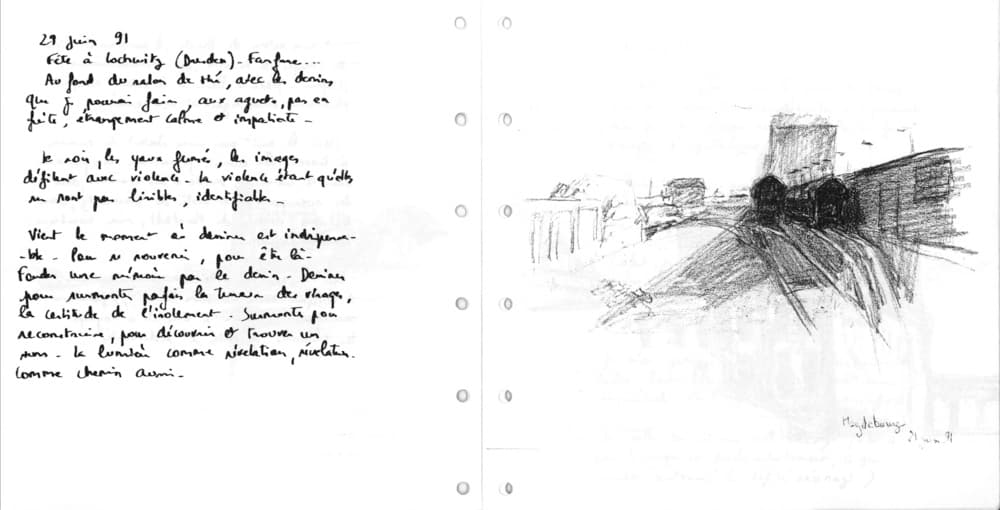 29 juin 91
Fête à Loschwitz (Dresden) - Fanfare...
Au fond du salon de thé, avec les dessins
que j pouvais faire, aux aguets, pas en
fuite, étrangement calme et impatiente -
Le soir, les yeux fermés, les images
défilent avec violence - la violence étant qu'elles
ne sont pas lisibles, identifiables -
Vient le moment où dessiner est indispensa-
-ble - Pour se souvenir, pour être là -
Fonder une mémoire par le dessin - Dessiner
pour surmonter parfois la terreur des visages,
la certitude de l'isolement - Surmonter pour
reconstruire, pour découvrir et trouver un
sens - la lumière comme révélation, révélation
comme chemin aussi -
Magdebourg
juin 91